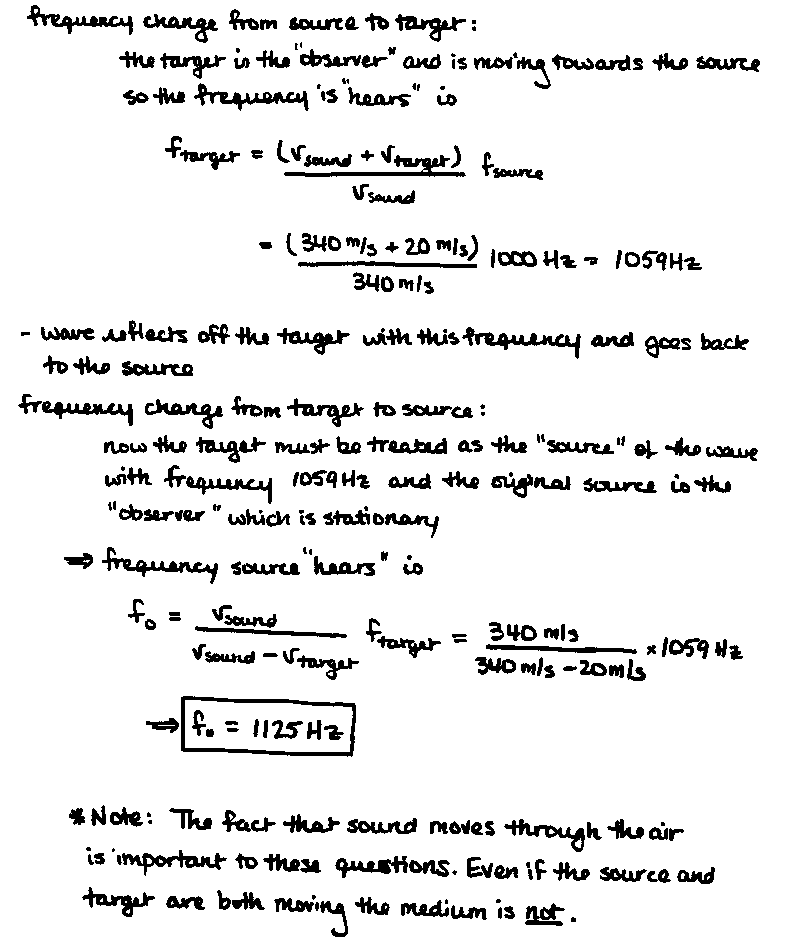 frequency change from source to target:
the target is the "observer" and is moving towards the source
so the frequency is "hears" is
f_target = (v_sound + v_target) / v_sound f_source
= (340 m/s + 20 m/s) / 340 m/s 1000 Hz = 1059Hz
- wave reflects off the target with this frequency and goes back
to the source
frequency change from target to source:
now the target must be treated as the "source" of the wave
with frequency 1059Hz and the original source is the
"observer" which is stationary
⇒ frequency source "hears" is
f_o = v_sound / (v_sound - v_target) f_target = 340 m/s / (340 m/s - 20m/s) × 1059 Hz
⇒ f_o = 1125 Hz
* Note: The fact that sound moves through the air
is important to these questions. Even if the source and
target are both moving the medium is not.